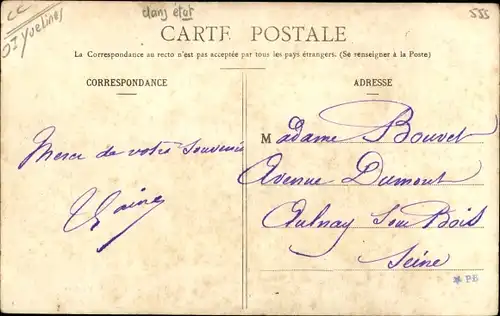 CC
01 Yvelines
dans état
555
CARTE POSTALE
La Correspondance au recto n'est pas acceptée par tous les pays étrangers. (Se renseigner à la Poste)
CORRESPONDANCE
Merci de votre souvenir
ADRESSE
Madame Bouvet
Avenue Dumont
Aulnay Sous Bois
Seine
P.B